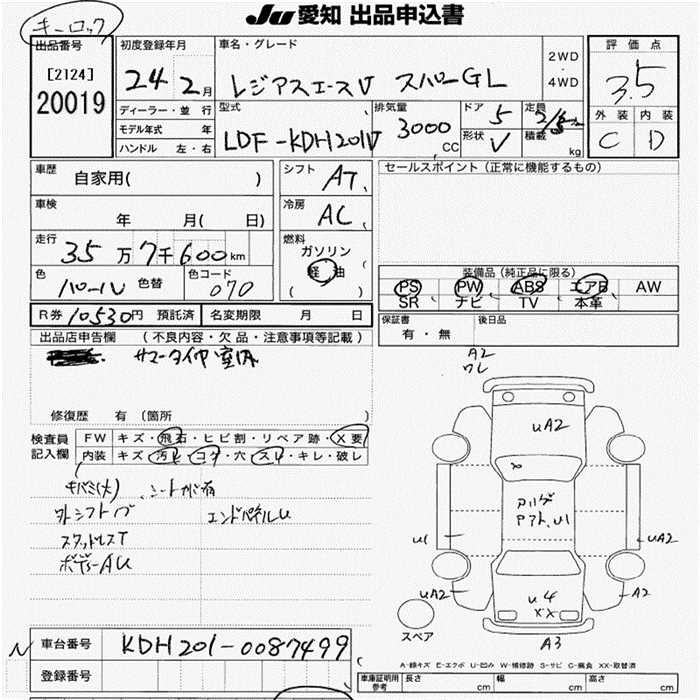 キーロック
JU 愛知 出品申込書
出品番号
[2124]
20019
初度登録年月
24年 2月
ディーラー・並行
モデル年式 年
ハンドル 左・右
車名・グレード
レジアスエースV スーパーGL
2WD
・
4WD
型式
LDF-KDH201V
排気量
3000
CC
ドア
5
形状
V
定員
2/5
積載
kg
評価点
3.5
外装 内装
C D
車歴
自家用( )
車検
年 月( 日)
走行
35万7千600km
色
パール
色替
色コード
070
シフト
AT
冷房
AC
燃料
ガソリン
軽油
( )
セールスポイント (正常に機能するもの)
装備品 (純正品に限る)
PS PW ABS エアB AW
SR ナビ TV 本革
R券 10530円 預託済
名変期限 月 日
保証書
有・無
後日品
出品店申告欄 (不良内容・欠品・注意事項等記載)
サマータイヤ室内
修復歴 有 (箇所 )
検査員
記入欄
FW キズ・飛石・ヒビ割・リペア跡・X要
内装 キズ・汚れ・コゲ・穴・スレ・キレ・破レ
キバミ(大) シートカバー有
外シフトノブ エンドパネルU
スタッドレスT
ボディーAU
A2
ワレ
UA2
アルゲ
Pアト、U1
U1
UA2
UA2
A2
U4
XX
A3
スペア
N
車台番号
KDH201-0087499
登録番号
A-線キズ E-エクボ U-凹み W-補修跡 S-サビ C-腐食 XX-取替済
車庫証明用
参考
長さ cm
幅 cm
高さ cm